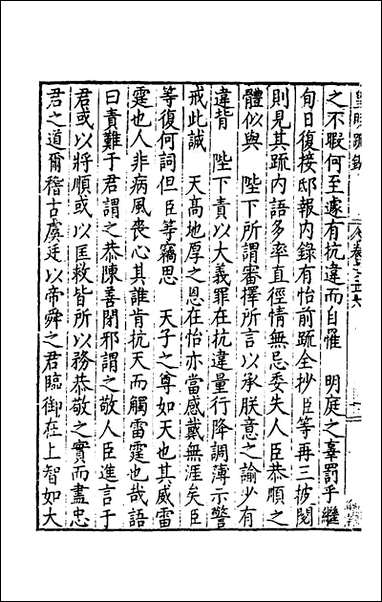 之不暇何至遽有抗違而自催　明庭之辜罰乎繼
旬日復接邸報內錄有怡前疏全抄臣等再三披閱
則見其疏內語多率直徑情無忌委失人臣恭順之
體似與　陛下所謂審擇所言以承朕意之諭少有
違背　陛下責以大義罪在抗違量行降調薄示警
戒此誠　天高地厚之恩在怡亦當感戴無涯矣臣
等復何詞但臣等竊思　天子之尊如天也其威雷
霆也人非病風喪心其誰肯抗天而觸雷霆也哉語
曰責難于君謂之恭陳善閉邪謂之敬人臣進言于
君或以將順或以匡救皆所以務恭敬之實而盡忠
君之道爾稽古虞廷以帝舜之君臨御在上智如大